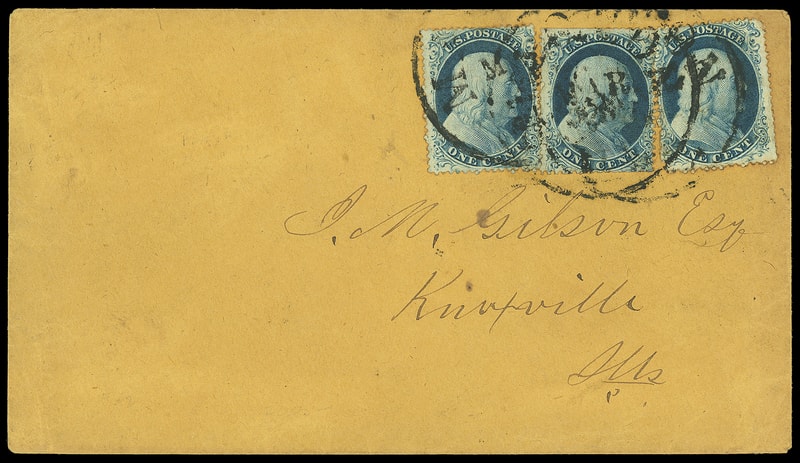 U.S. POSTAGE
ONE CENT
U.S. POSTAGE
ONE CENT
U.S. POSTAGE
ONE CENT
MAR
J. M. Gibson Esq
Knoxville
Ills